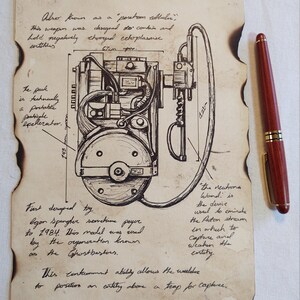 Also known as a "positron collider".
This weapon was designed to contain and
hold negatively charged ectoplasmic
entities
The pack
is technically
a portable
particle
accelerator.
"The neutrona
Wand" is
the device
used to
the Proton stream
on which to
capture and
weaken the
entity
First designed by
Egon Spengler sometime prior
to 1984. This model was used
by the organization known
as the Ghostbusters.
This containment ability allows the wielder
to position an entity above a trap for capture.